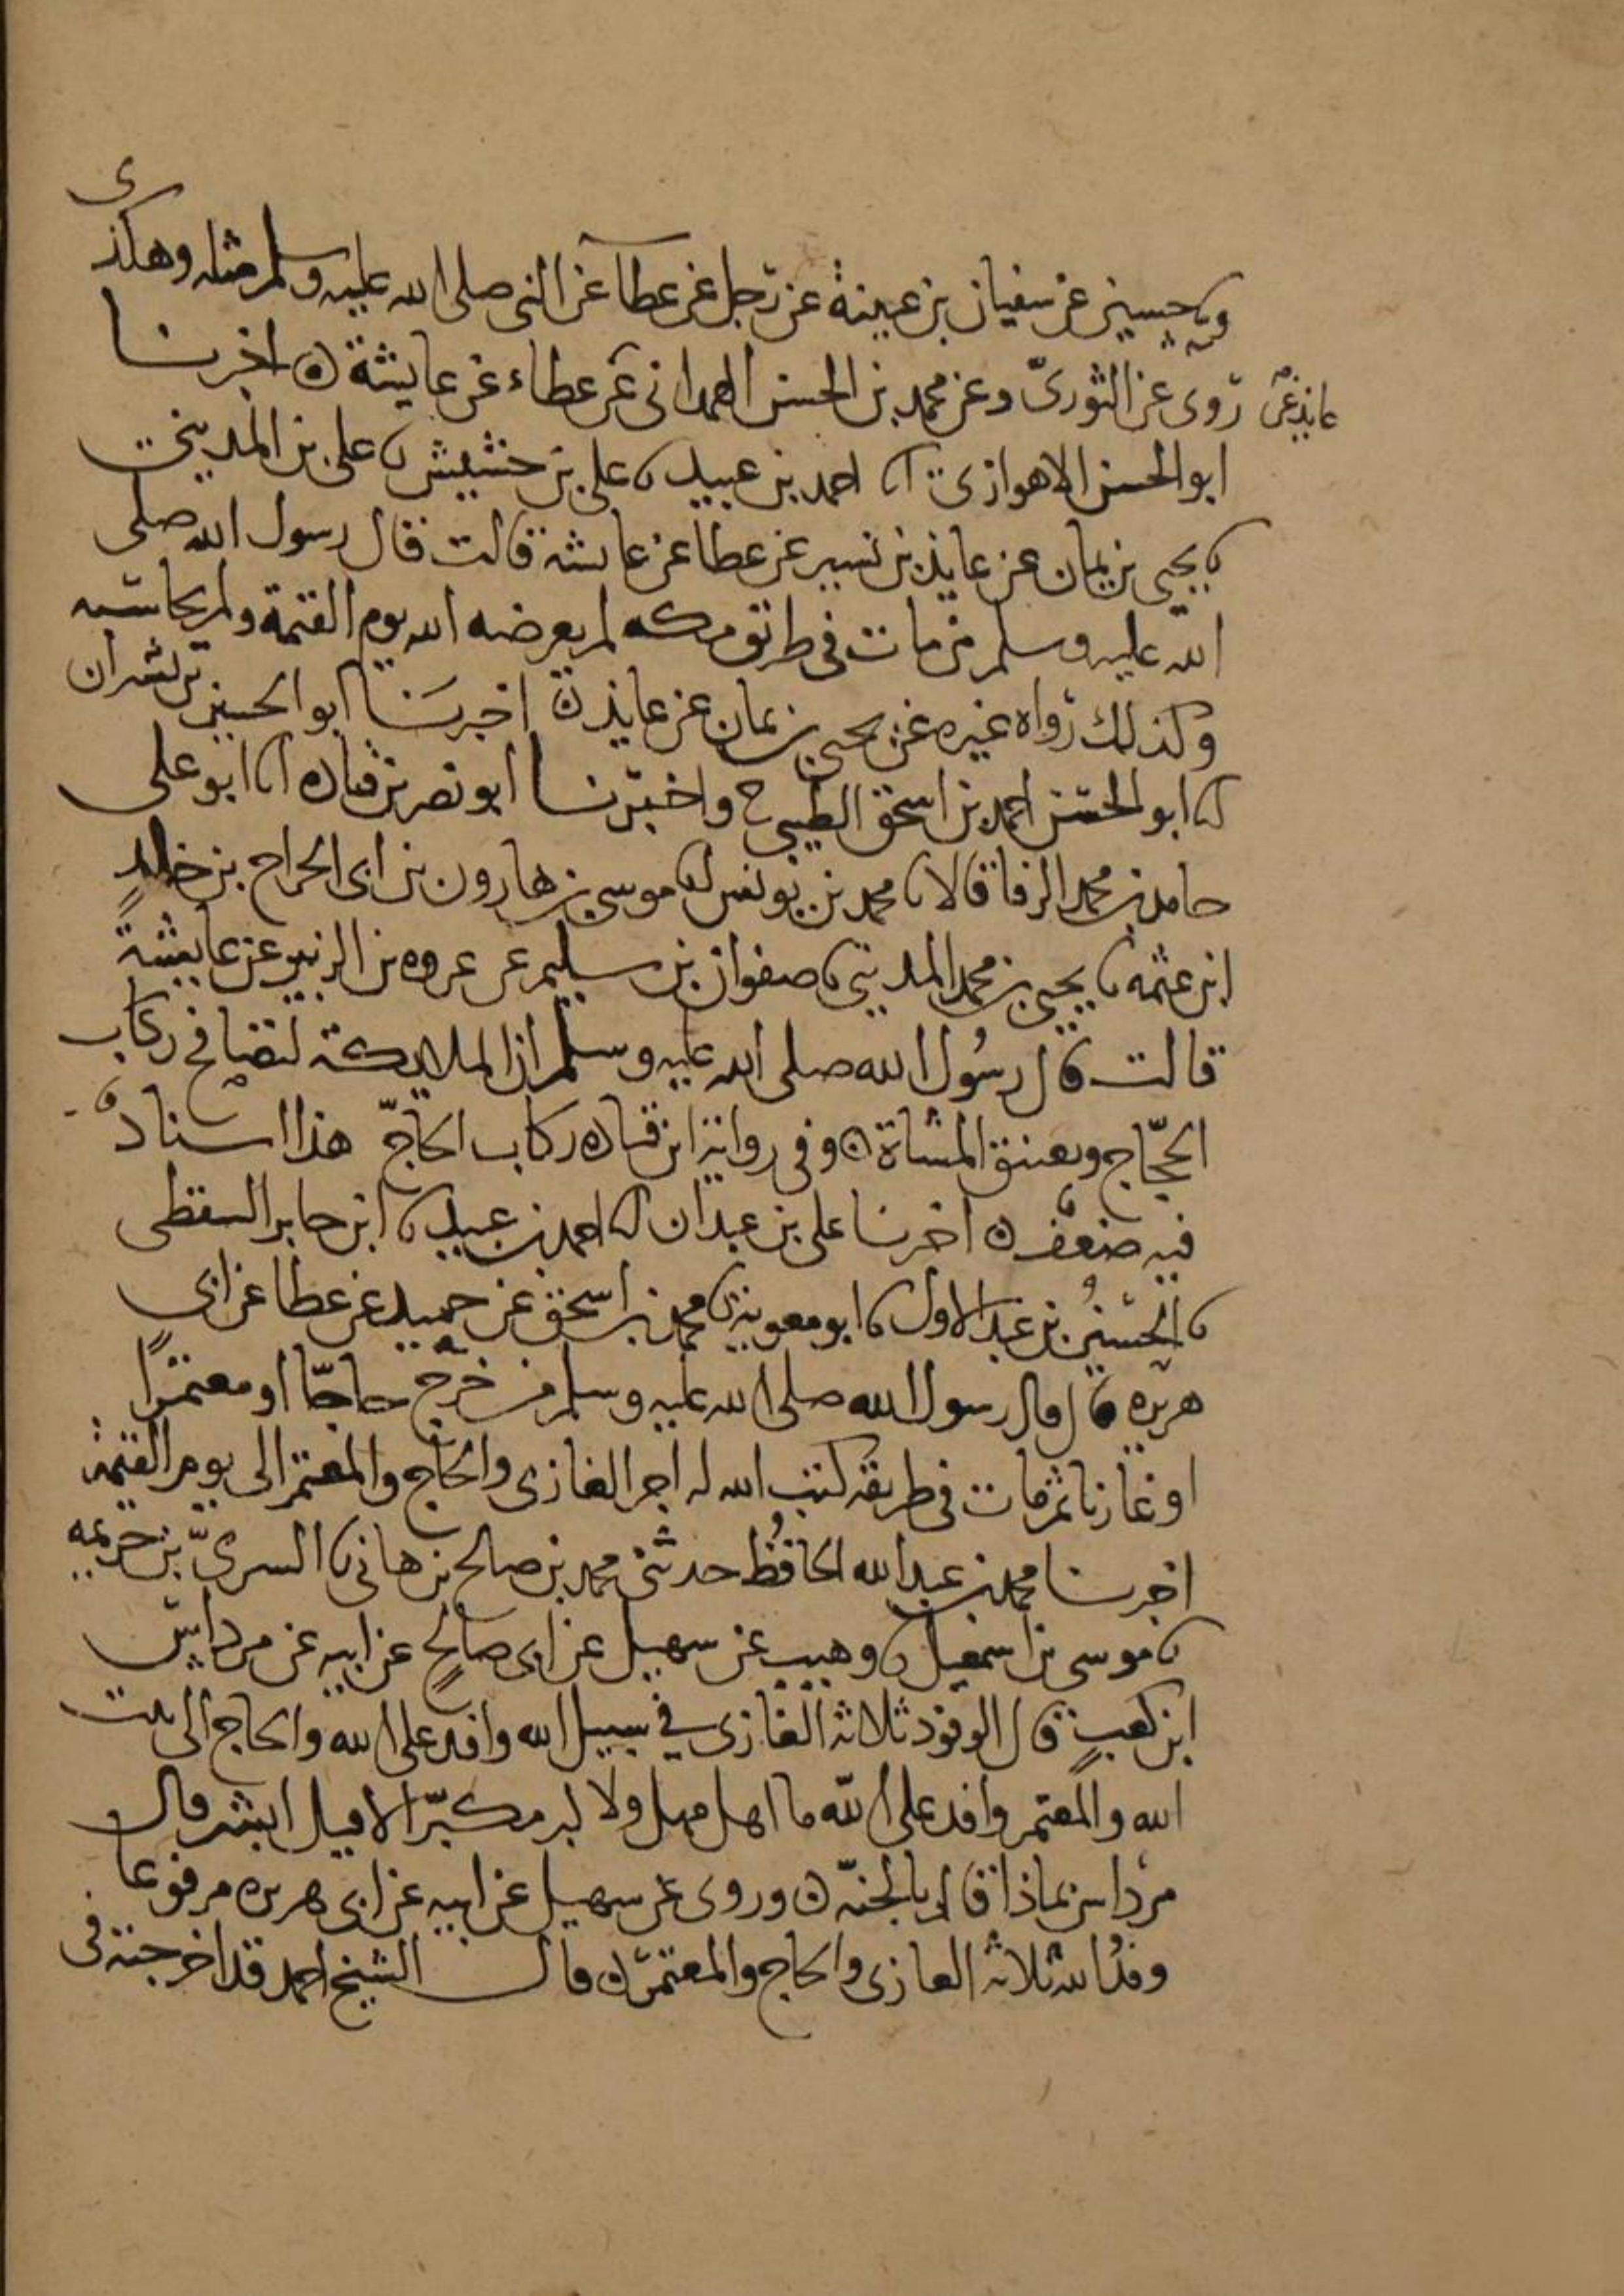 وحسين عن سفيان بن عيينة عن رجل عن عطا عن النبي صلى الله عليه وسلم مثله وهكذى
روى عن الثوري وعن محمد بن الحسن الهمداني عن عطاء عن عايشة ه اخبرنا
عايذ عن
ابو الحسن الاهوازي انا احمد بن عبيد نا علي بن حشيش نا علي بن المديني
نا يحيى بن يمان عن عايذ بن نسير عن عطا عن عايشة قالت قال رسول الله صلى
الله عليه وسلم من مات في طريق مكه لم يعرضه الله يوم القيمة ولم يحاسبه
وكذلك رواه غيره عن يحيى بن يمان عن عايذ ه اخبرنا ابو الحسين بن بشران
انا ابو الحسن احمد بن اسحق الطيبي ح واخبرنا ابو نصر بن قتاده انا ابو علي
حامد بن محمد الرفا قالا نا محمد بن يونس نا موسى بن هارون بن ابي الجراح بن خالد
ابن عثمه نا يحيى بن محمد المديني نا صفوان بن سليم عن عروه بن الزبير عن عايشة
قالت قال رسول الله صلى الله عليه وسلم ان الملايكة لتصافح ركاب
الحجاج وتعتنق المشاة ه وفي رواية ابن قتاده ركاب الحاج هذا اسناد
فيه ضعف ه اخبرنا علي بن عبدان انا احمد بن عبيد نا ابن جابر السقطي
نا الحسين بن عبد الاول نا ابو معوية نا محمد بن اسحق عن حميد عن عطا عن ابي
هريره قال قال رسول الله صلى الله عليه وسلم من خرج حاجا او معتمرا
او غازيا ثم مات في طريقه كتب الله له اجر الغازي والحاج والمعتمر الى يوم القيمة
اخبرنا محمد بن عبد الله الحافظ حدثني محمد بن صالح بن هاني نا السري بن خزيمه
نا موسى بن اسمعيل نا وهيب عن سهيل عن ابي صالح عن ابيه عن مرداس
ابن كعب قال الوفود ثلاثة الغازي في سبيل الله وافد على الله والحاج الى بيت
الله والمعتمر وافد على الله ما اهل مهل ولا كبر مكبر الا قيل ابشر قال
مرداس بماذا قال بالجنه ه وروى عن سهيل عن ابيه عن ابي هريره مرفوعا
وفد الله ثلاثة الغازي والحاج والمعتمر ه قال الشيخ احمد قد اخرجته في